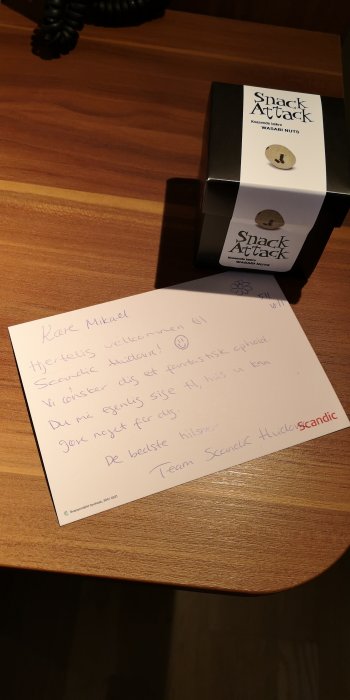 Snack
Attack
WASABI NUTS
Snack
Attack
WASABI NUTS
Kære Mikael
Hjertelig velkommen til
Scandic Hvidovre!
Vi ønsker dig et fantastisk ophold
Du må egenlig sige til, hvis vi kan
gøre noget for dig.
De bedste hilsner
Team Scandic Hvidovre
Scandic